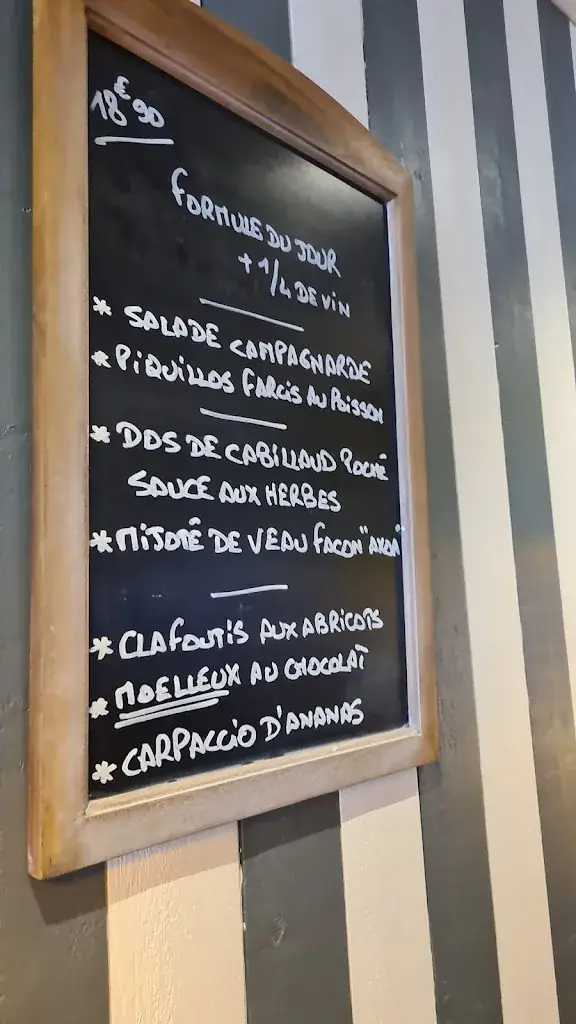 18€90
FORMULE DU JOUR
+ 1/4 DE VIN
* SALADE CAMPAGNARDE
* PIQUILLOS FARCIS AU POISSON
* DOS DE CABILLAUD POCHÉ
SAUCE AUX HERBES
* MIJOTÉ DE VEAU FACON "AXOA"
* CLAFOUTIS AUX ABRICOTS
* MOELLEUX AU CHOCOLAT
* CARPACCIO D'ANANAS